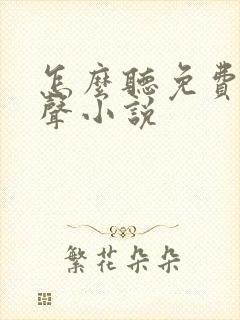 怎麼聽免費
聲小說
繁花朵朵